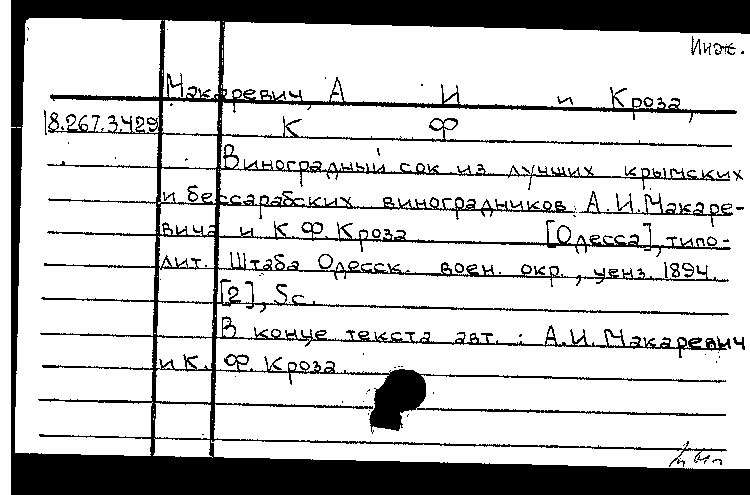 Инж.
Макаревич, А И и Кроза,
18.267.3.429 К Ф
Виноградный сок из лучших крымских
и бессарабских виноградников А.И.Макаре-
вича и К.Ф.Кроза [Одесса], типо-
лит. Штаба Одесск. воен. окр., ценз. 1894.
[2], 5с.
В конце текста авт.: А.И.Макаревич
и К. Ф. Кроза.